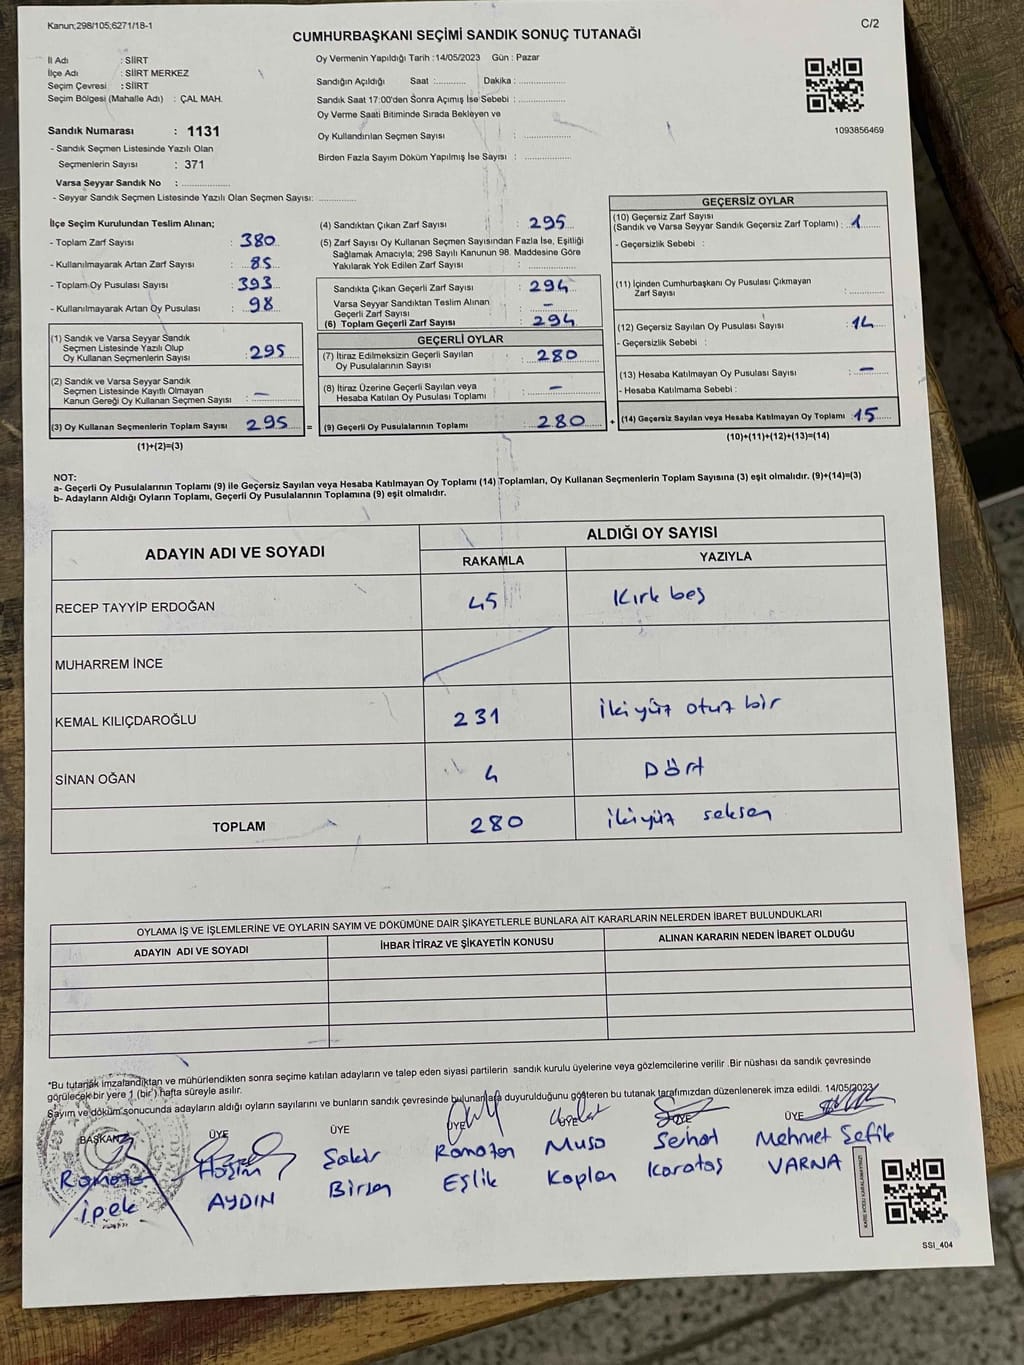 Kanun;298/105;6271/18-1
C/2
CUMHURBAŞKANI SEÇİMİ SANDIK SONUÇ TUTANAĞI
İl Adı : SİİRT
İlçe Adı : SİİRT MERKEZ
Seçim Çevresi : SİİRT
Seçim Bölgesi (Mahalle Adı) : ÇAL MAH.
Sandık Numarası : 1131
- Sandık Seçmen Listesinde Yazılı Olan
Seçmenlerin Sayısı : 371
Varsa Seyyar Sandık No : ..............
- Seyyar Sandık Seçmen Listesinde Yazılı Olan Seçmen Sayısı: ............
Oy Vermenin Yapıldığı Tarih :14/05/2023 Gün : Pazar
Sandığın Açıldığı Saat :.......... Dakika : ...............
Sandık Saat 17:00'den Sonra Açımış İse Sebebi : ...............
Oy Verme Saati Bitiminde Sırada Bekleyen ve
Oy Kullandırılan Seçmen Sayısı : ...............
Birden Fazla Sayım Döküm Yapılmış İse Sayısı : ...............
1093856469
İlçe Seçim Kurulundan Teslim Alınan;
- Toplam Zarf Sayısı : 380
- Kullanılmayarak Artan Zarf Sayısı : 85
- Toplam Oy Pusulası Sayısı : 393
- Kullanılmayarak Artan Oy Pusulası : 98
(1) Sandık ve Varsa Seyyar Sandık
Seçmen Listesinde Yazılı Olup
Oy Kullanan Seçmenlerin Sayısı : 295
(2) Sandık ve Varsa Seyyar Sandık
Seçmen Listesinde Kayıtlı Olmayan
Kanun Gereği Oy Kullanan Seçmen Sayısı : —
(3) Oy Kullanan Seçmenlerin Toplam Sayısı : 295 =
(1)+(2)=(3)
(4) Sandıktan Çıkan Zarf Sayısı : 295
(5) Zarf Sayısı Oy Kullanan Seçmen Sayısından Fazla İse, Eşitliği
Sağlamak Amacıyla; 298 Sayılı Kanunun 98. Maddesine Göre
Yakılarak Yok Edilen Zarf Sayısı : ...............
Sandıkta Çıkan Geçerli Zarf Sayısı : 294
Varsa Seyyar Sandıktan Teslim Alınan
Geçerli Zarf Sayısı : —
(6) Toplam Geçerli Zarf Sayısı : 294
GEÇERLİ OYLAR
(7) İtiraz Edilmeksizin Geçerli Sayılan
Oy Pusulalarının Sayısı : 280
(8) İtiraz Üzerine Geçerli Sayılan veya
Hesaba Katılan Oy Pusulası Toplamı : —
(9) Geçerli Oy Pusulalarının Toplamı : 280 +
GEÇERSİZ OYLAR
(10) Geçersiz Zarf Sayısı
(Sandık ve Varsa Seyyar Sandık Geçersiz Zarf Toplamı) : 1
- Geçersizlik Sebebi :
(11) İçinden Cumhurbaşkanı Oy Pusulası Çıkmayan
Zarf Sayısı : ............
(12) Geçersiz Sayılan Oy Pusulası Sayısı : 14
- Geçersizlik Sebebi :
(13) Hesaba Katılmayan Oy Pusulası Sayısı : —
- Hesaba Katılmama Sebebi :
(14) Geçersiz Sayılan veya Hesaba Katılmayan Oy Toplamı : 15
(10)+(11)+(12)+(13)=(14)
NOT:
a- Geçerli Oy Pusulalarının Toplamı (9) ile Geçersiz Sayılan veya Hesaba Katılmayan Oy Toplamı (14) Toplamları, Oy Kullanan Seçmenlerin Toplam Sayısına (3) eşit olmalıdır. (9)+(14)=(3)
b- Adayların Aldığı Oyların Toplamı, Geçerli Oy Pusulalarının Toplamına (9) eşit olmalıdır.
ADAYIN ADI VE SOYADI
ALDIĞI OY SAYISI
RAKAMLA YAZIYLA
RECEP TAYYİP ERDOĞAN 45 Kırk beş
MUHARREM İNCE
KEMAL KILIÇDAROĞLU 231 İkiyüz otuz bir
SİNAN OĞAN 4 Dört
TOPLAM 280 ikiyüz seksen
OYLAMA İŞ VE İŞLEMLERİNE VE OYLARIN SAYIM VE DÖKÜMÜNE DAİR ŞİKAYETLERLE BUNLARA AİT KARARLARIN NELERDEN İBARET BULUNDUKLARI
ADAYIN ADI VE SOYADI İHBAR İTİRAZ VE ŞİKAYETİN KONUSU ALINAN KARARIN NEDEN İBARET OLDUĞU
*Bu tutanak imzalandıktan ve mühürlendikten sonra seçime katılan adayların ve talep eden siyasi partilerin sandık kurulu üyelerine veya gözlemcilerine verilir .Bir nüshası da sandık çevresinde
görülecek bir yere 1 (bir) hafta süreyle asılır.
Sayım ve döküm sonucunda adayların aldığı oyların sayılarını ve bunların sandık çevresinde bulunanlara duyurulduğunu gösteren bu tutanak tarafımızdan düzenlenerek imza edildi. 14/05/2023
BAŞKAN ÜYE ÜYE ÜYE ÜYE ÜYE ÜYE
Ramazan Hasim Şakir Ramazan Musa Serhat Mehmet Şefik
ipek AYDIN Birsen Eşlik Kaplan Karataş VARNA
SSI_404